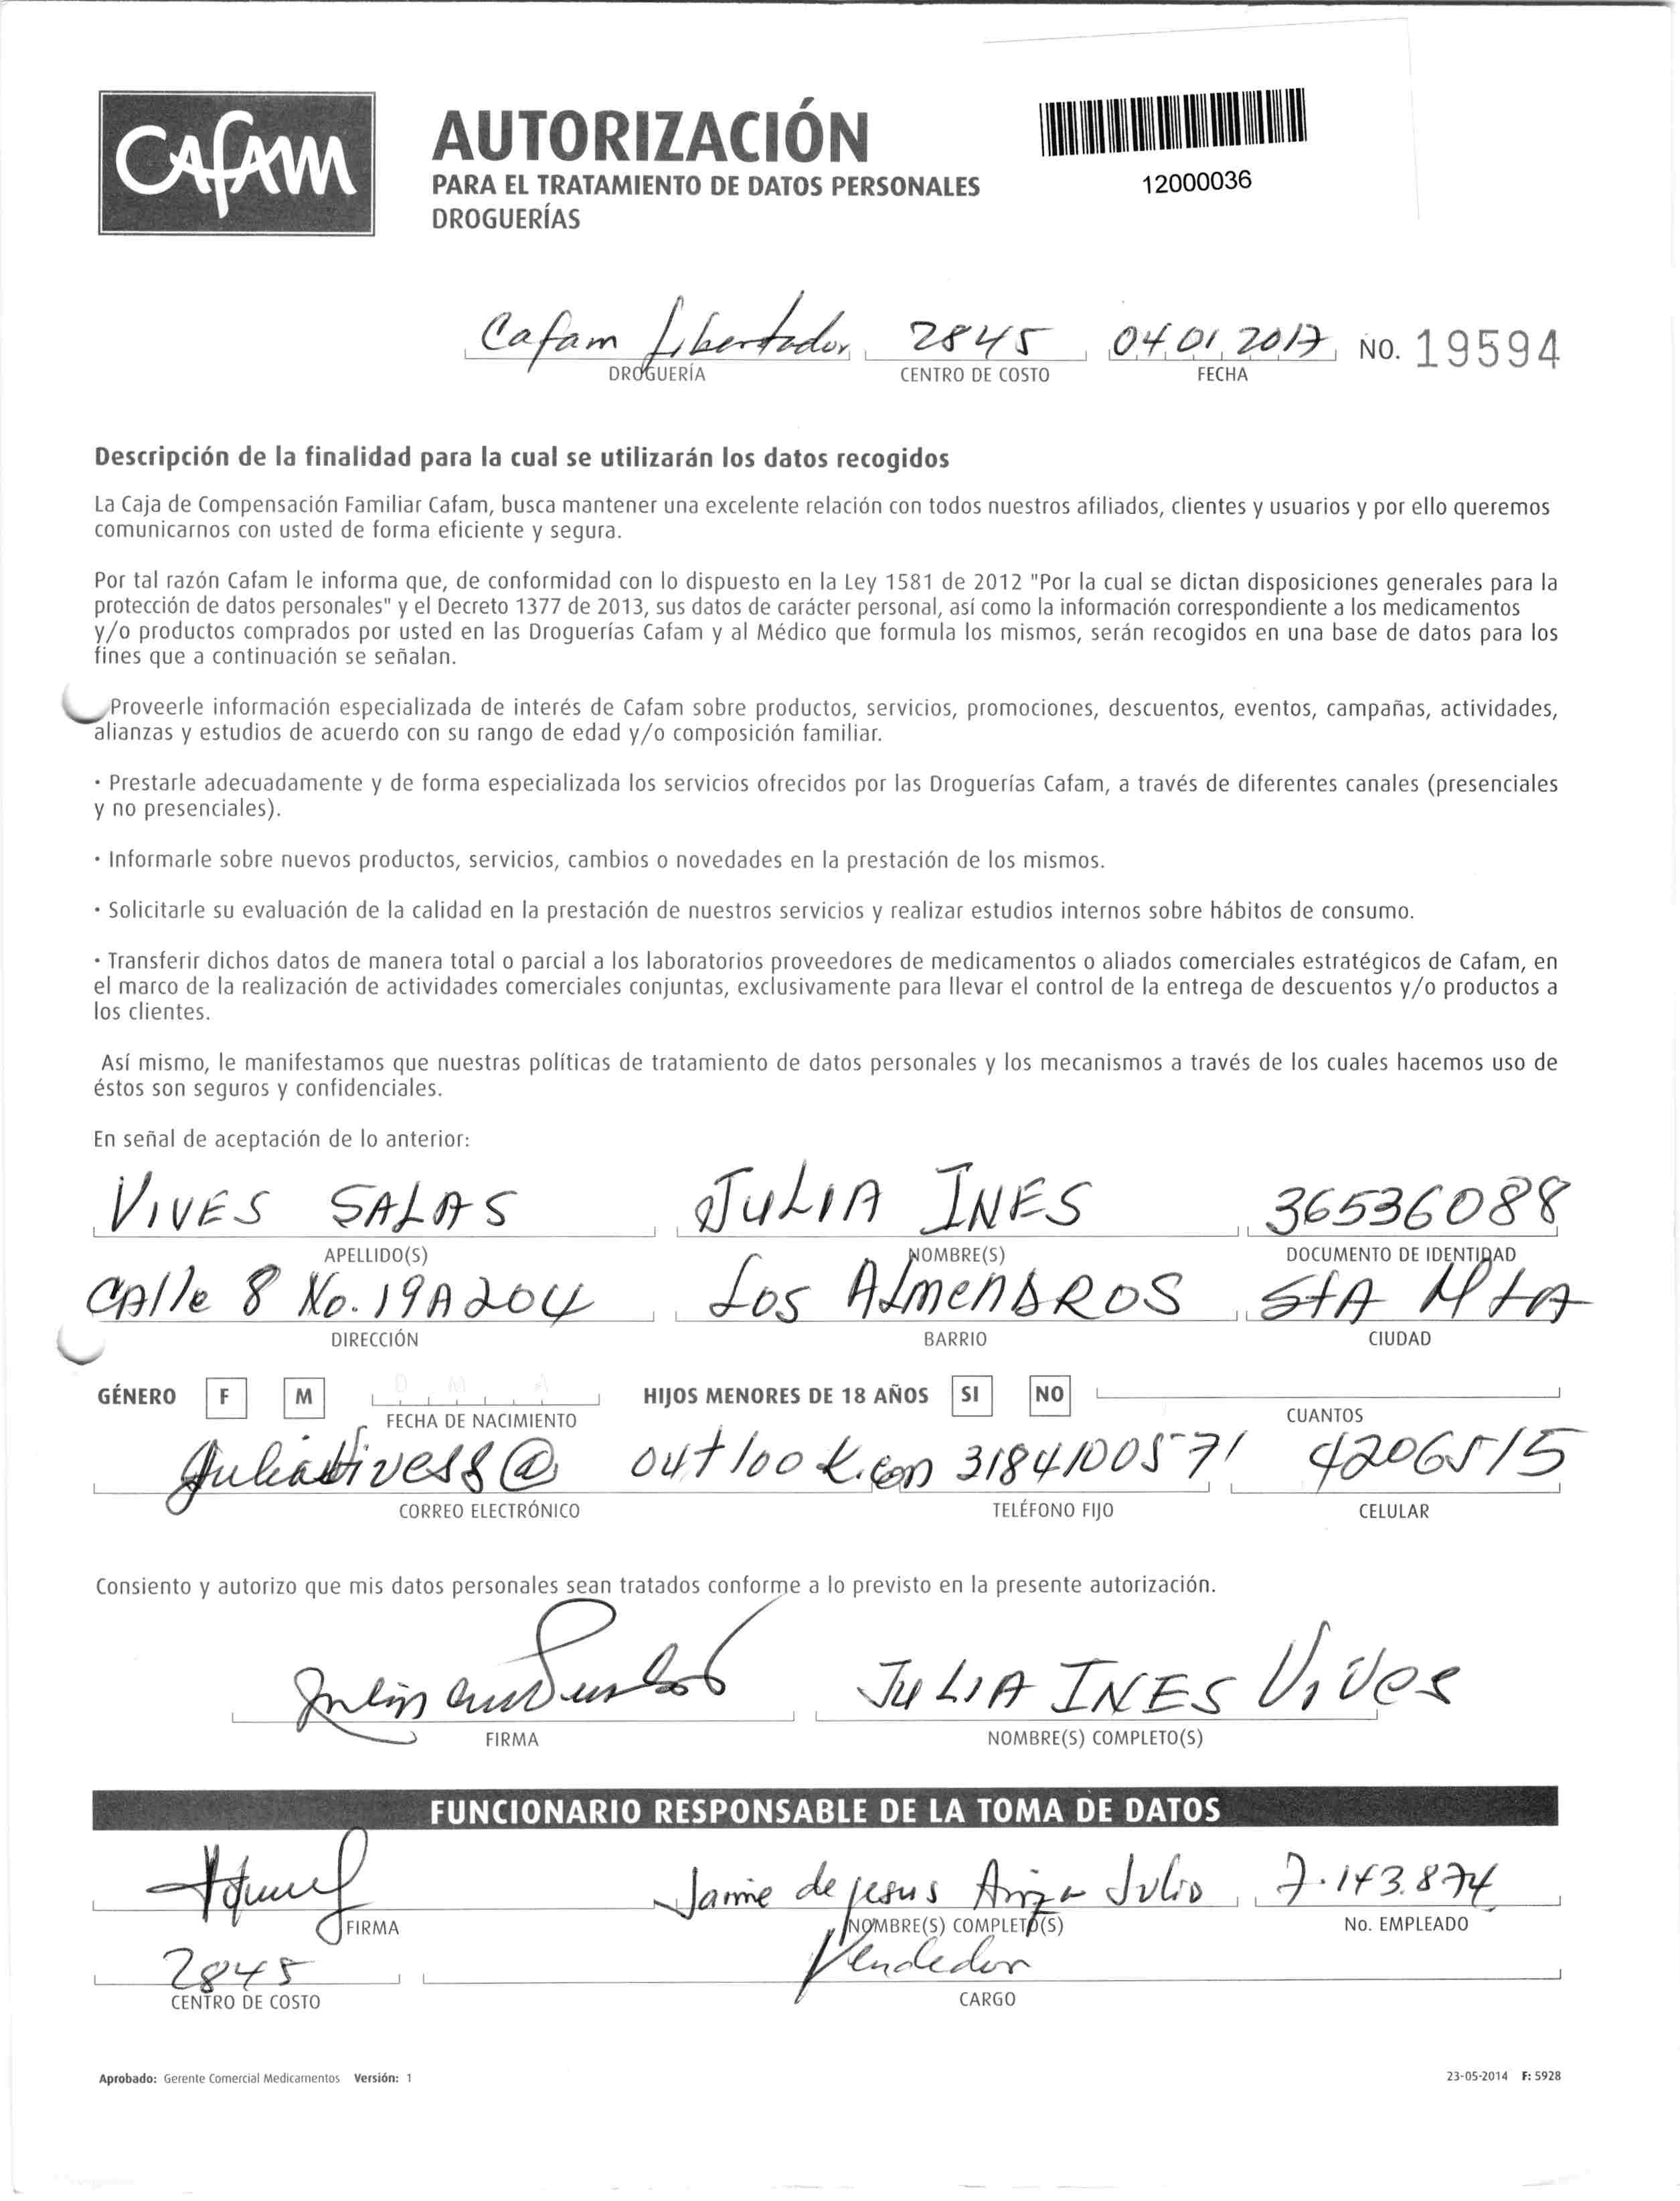 CAFAM
AUTORIZACIÓN
PARA EL TRATAMIENTO DE DATOS PERSONALES
DROGUERÍAS
12000036
Cafam Libertador 2845 04 01 2017 NO. 19594
DROGUERÍA CENTRO DE COSTO FECHA
Descripción de la finalidad para la cual se utilizarán los datos recogidos
La Caja de Compensación Familiar Cafam, busca mantener una excelente relación con todos nuestros afiliados, clientes y usuarios y por ello queremos
comunicarnos con usted de forma eficiente y segura.
Por tal razón Cafam le informa que, de conformidad con lo dispuesto en la Ley 1581 de 2012 "Por la cual se dictan disposiciones generales para la
protección de datos personales" y el Decreto 1377 de 2013, sus datos de carácter personal, así como la información correspondiente a los medicamentos
y/o productos comprados por usted en las Droguerías Cafam y al Médico que formula los mismos, serán recogidos en una base de datos para los
fines que a continuación se señalan.
Proveerle información especializada de interés de Cafam sobre productos, servicios, promociones, descuentos, eventos, campañas, actividades,
alianzas y estudios de acuerdo con su rango de edad y/o composición familiar.
· Prestarle adecuadamente y de forma especializada los servicios ofrecidos por las Droguerías Cafam, a través de diferentes canales (presenciales
y no presenciales).
· Informarle sobre nuevos productos, servicios, cambios o novedades en la prestación de los mismos.
· Solicitarle su evaluación de la calidad en la prestación de nuestros servicios y realizar estudios internos sobre hábitos de consumo.
· Transferir dichos datos de manera total o parcial a los laboratorios proveedores de medicamentos o aliados comerciales estratégicos de Cafam, en
el marco de la realización de actividades comerciales conjuntas, exclusivamente para llevar el control de la entrega de descuentos y/o productos a
los clientes.
Así mismo, le manifestamos que nuestras políticas de tratamiento de datos personales y los mecanismos a través de los cuales hacemos uso de
éstos son seguros y confidenciales.
En señal de aceptación de lo anterior:
VIVES SALAS JULIA INES 36536088
APELLIDO(S) NOMBRE(S) DOCUMENTO DE IDENTIDAD
CAlle 8 No. 19A204 Los ALmenDROS StA MtA
DIRECCIÓN BARRIO CIUDAD
GÉNERO F M D M A HIJOS MENORES DE 18 AÑOS SI NO
FECHA DE NACIMIENTO CUANTOS
@ outlook.com 3184100571 4206515
CORREO ELECTRÓNICO TELÉFONO FIJO CELULAR
Consiento y autorizo que mis datos personales sean tratados conforme a lo previsto en la presente autorización.
JULIA INES Vives
FIRMA NOMBRE(S) COMPLETO(S)
FUNCIONARIO RESPONSABLE DE LA TOMA DE DATOS
Jaime de jesus Ariza Julio 7.143.874
FIRMA NOMBRE(S) COMPLETO(S) No. EMPLEADO
2845 Vendedor
CENTRO DE COSTO CARGO
Aprobado: Gerente Comercial Medicamentos Versión: 1 23-05-2014 F: 5928